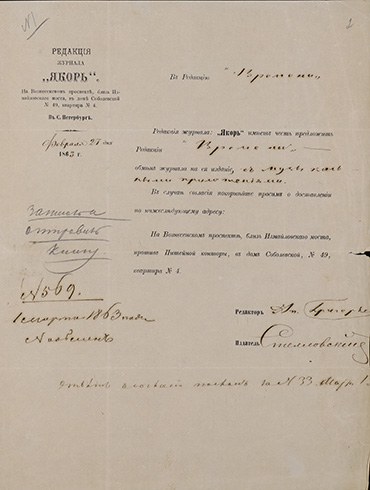 РЕДАКЦІЯ
ЖУРНАЛА
„ЯКОРЬ“.
На Вознесенскомъ проспектѣ, близь Из-
майловскаго моста, въ домѣ Соболевской
№ 49, квартира № 4.
Въ С. Петербургѣ.
Февраля 27 дня
1863 г.
Въ Редакцію
Редакція журнала: „Якорь“ имѣетъ честь предложить
Редакціи
обмѣнъ журнала на ея изданіе, съ музыкаль
ными приложеніями.
Въ случаѣ согласія покорнѣйше просимъ о доставленіи
по нижеслѣдующему адресу:
На Вознесенскомъ проспектѣ, близь Измайловскаго моста,
противъ Питейной конторы, въ домѣ Соболевской, № 49,
квартира № 4.
книгу
№ 569.
1 марта 1863 года
Редакторъ Ап. Григорьевъ
Издатель Стелловскій
№ 33